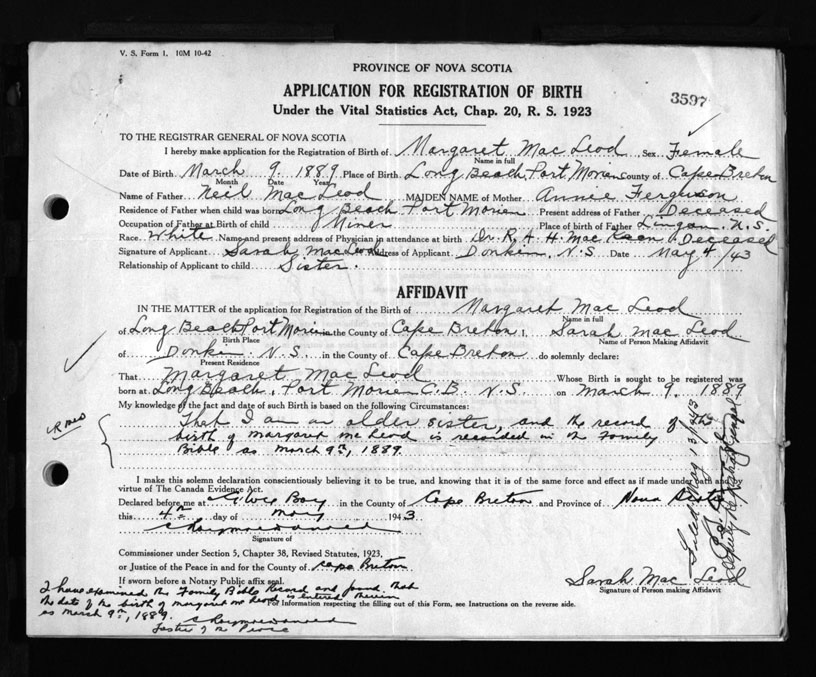 V. S. Form 1. 10M 10-42
PROVINCE OF NOVA SCOTIA
APPLICATION FOR REGISTRATION OF BIRTH
3597
Under the Vital Statistics Act, Chap. 20, R. S. 1923
TO THE REGISTRAR GENERAL OF NOVA SCOTIA
I hereby make application for the Registration of Birth of Margaret Mac Leod Sex Female
Name in full
Date of Birth March 9. 1889 Place of Birth Long Beach, Port Morien County of Cape Breton
Month Date Year
Name of Father Neil Mac Leod MAIDEN NAME of Mother Annie Ferguson
Residence of Father when child was born Long Beach Port Morien Present address of Father Deceased
Occupation of Father at Birth of child Miner Place of birth of Father Lingan, N.S.
Race White Name and present address of Physician in attendance at birth Dr. R. A. H. Mac Keen Deceased
Signature of Applicant Sarah Mac Leod Address of Applicant Donkin, N.S. Date May 4/43
Relationship of Applicant to child Sister.
AFFIDAVIT
IN THE MATTER of the application for Registration of the Birth of Margaret Mac Leod
Name in full
of Long Beach Port Morien in the County of Cape Breton I, Sarah Mac Leod
Birth Place Name of Person Making Affidavit
of Donkin N.S. in the County of Cape Breton do solemnly declare:
Present Residence
That Margaret Mac Leod Whose Birth is sought to be registered was
born at Long Beach, Port Morien C.B. N.S. on March 9. 1889
My knowledge of the fact and date of such Birth is based on the following Circumstances:
That I am an older sister, and the record of the
birth of Margaret Mc Leod is recorded in the Family
Bible as March 9th, 1889.
I make this solemn declaration conscientiously believing it to be true, and knowing that it is of the same force and effect as if made under oath and by
virtue of The Canada Evidence Act.
Declared before me at Glace Bay in the County of Cape Breton and Province of Nova Scotia
this 4th day of May 1943
Signature of
Commissioner under Section 5, Chapter 38, Revised Statutes, 1923,
or Justice of the Peace in and for the County of Cape Breton
If sworn before a Notary Public affix seal.
Sarah Mac Leod
Signature of Person making Affidavit
I have examined the Family Bible Record and found that
the date of the birth of Margaret Mc Leod is entered therein
as March 9th, 1889.
For Information respecting the filling out of this Form, see Instructions on the reverse side.
of the Peace